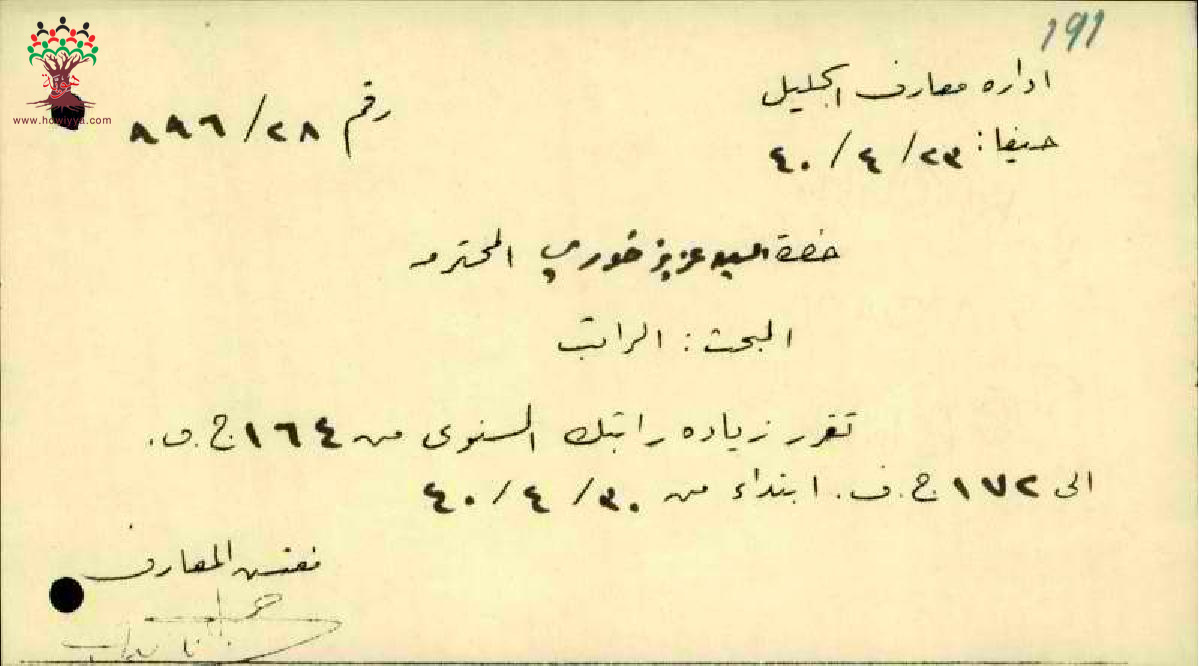 191
اداره معارف الجليل
رقم ٨٩٦/٢٨
حيفا: ٢٣/٤/٤٠
حضرة السيد عزيز خوري المحترم
المبحث: الراتب
تقرر زياده راتبك السنوى من ١٦٤ ج.ف.
الى ١٧٢ ج.ف. ابتداء من ٣٠/٤/٤٠
مفتش المعارف
www.howiyya.com